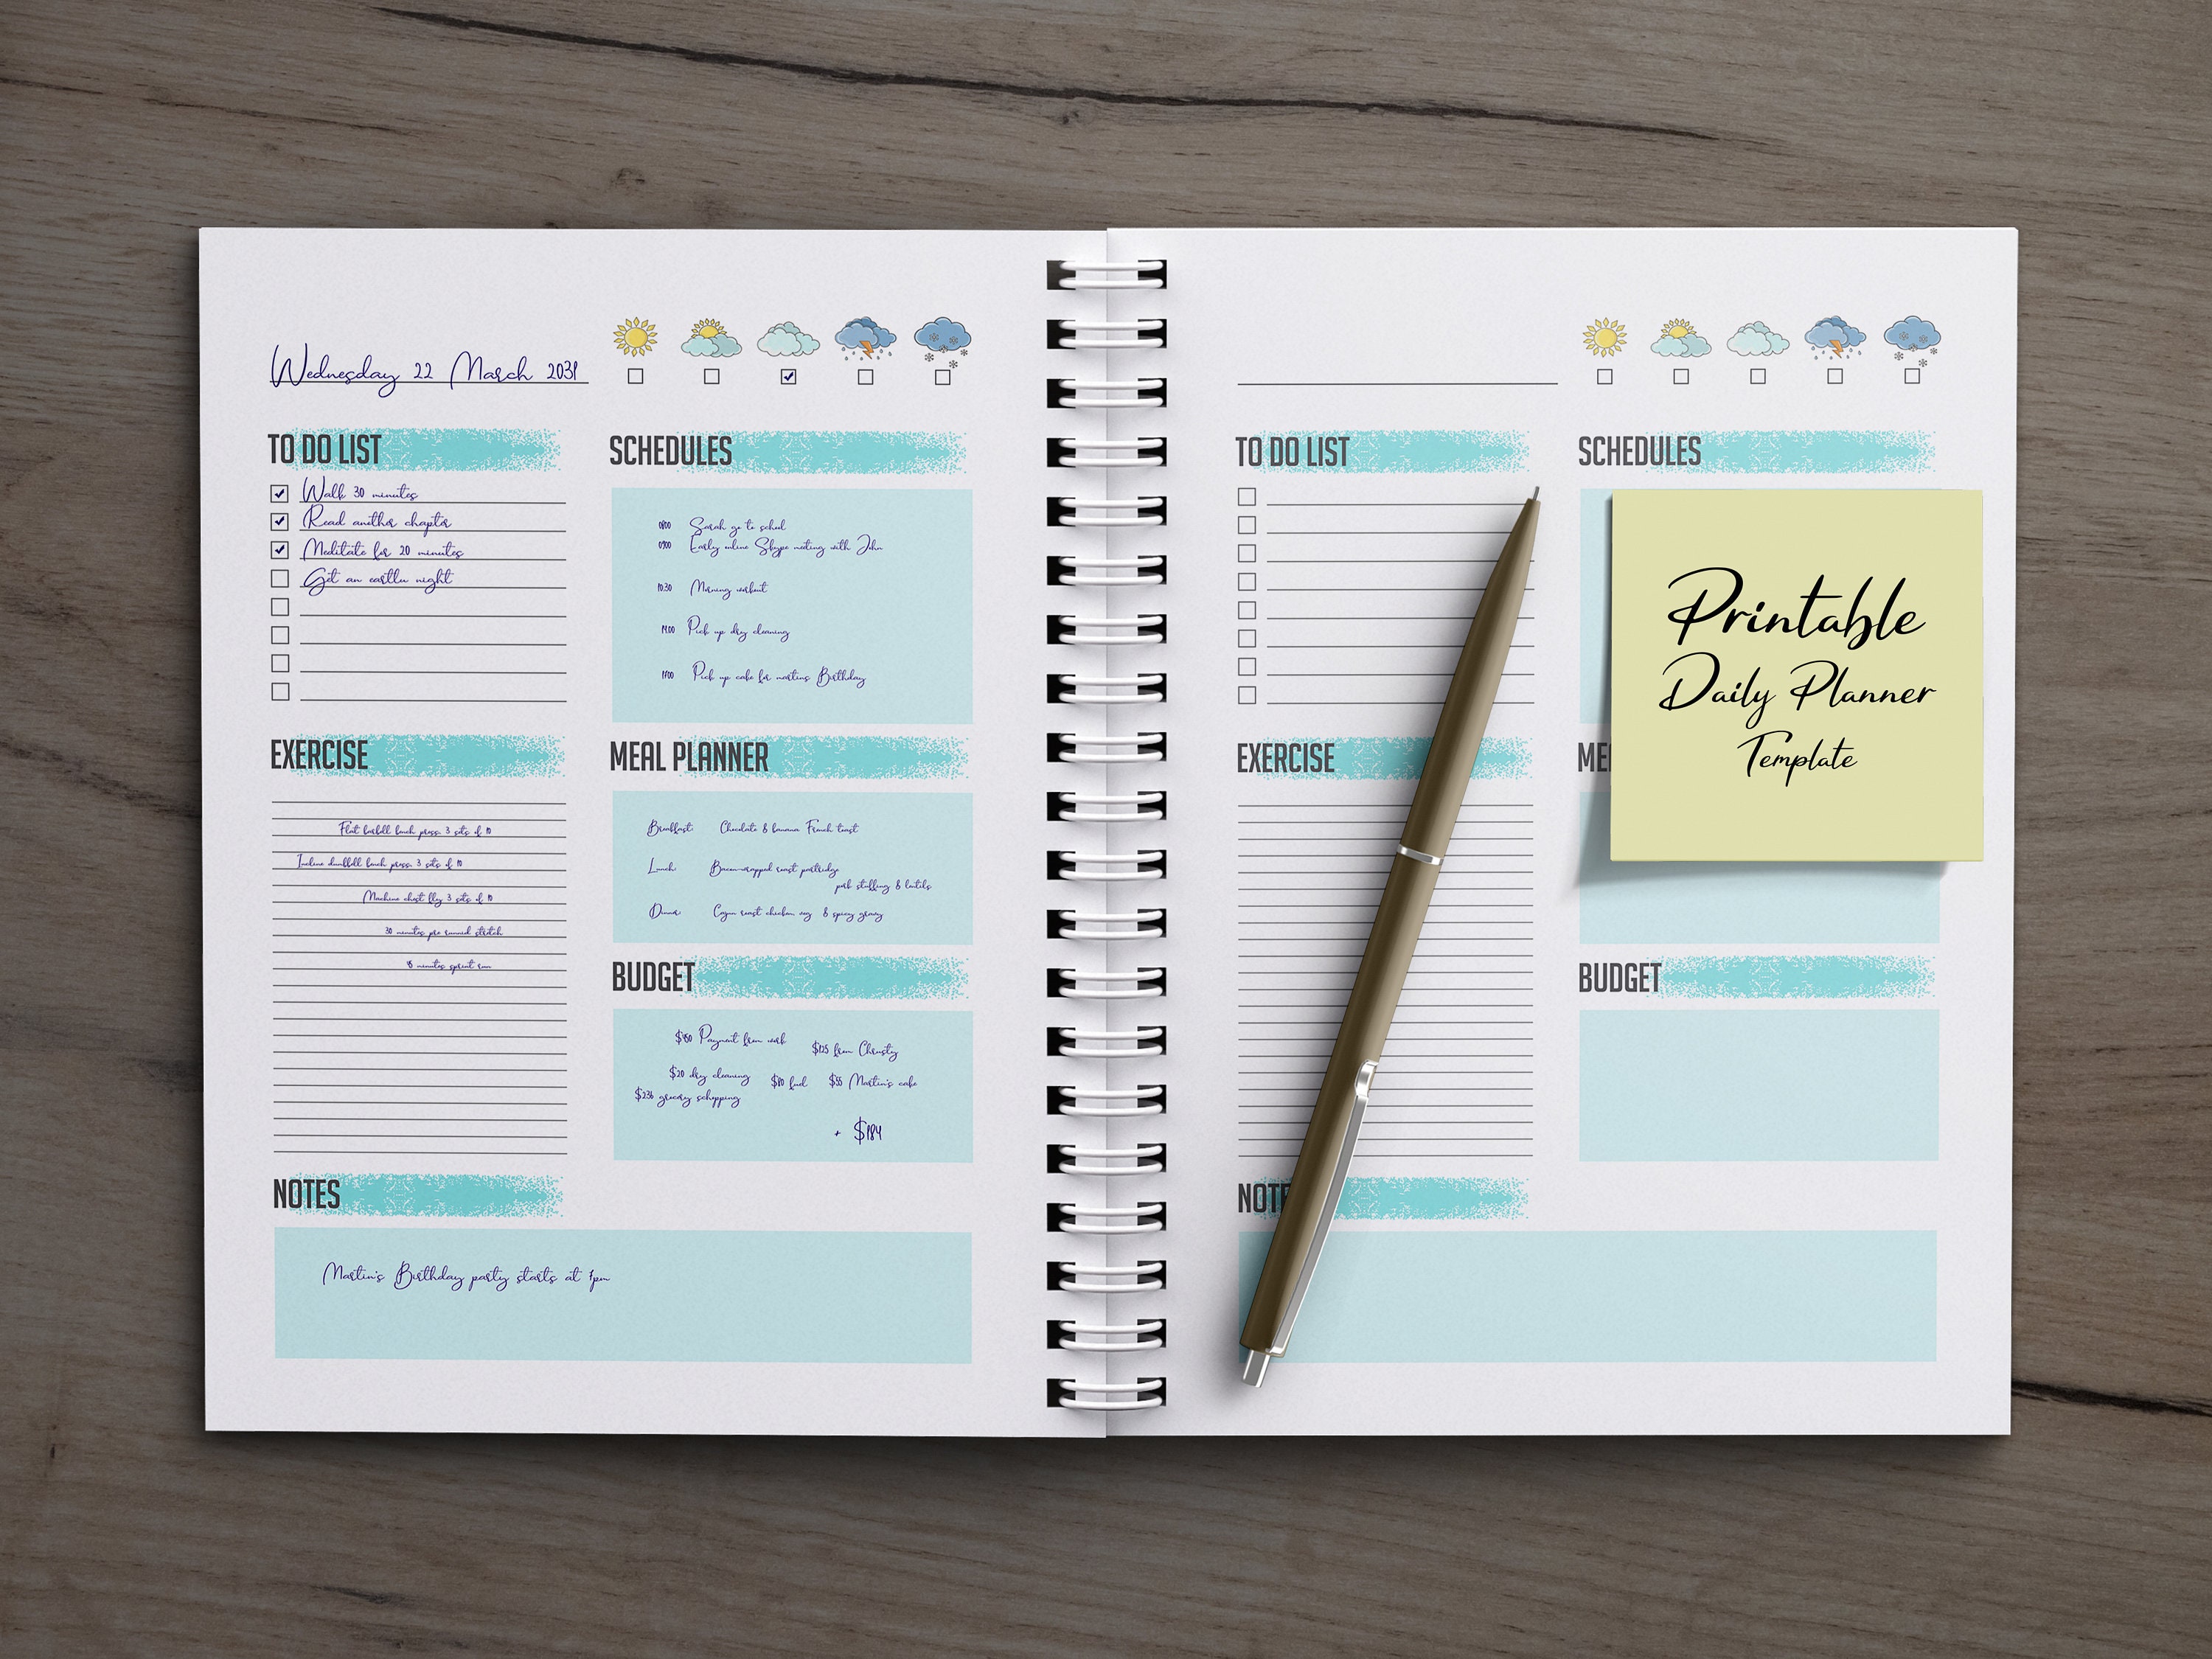 Wednesday 22 March 2031
TO DO LIST
Walk 30 minutes
Read another chapter
Meditate for 20 minutes
Get an earllu night
SCHEDULES
0800 Sarah go to school
0900 Early online Skype meeting with John
10.30 Morning workout
14.00 Pick up dry cleaning
Pick up cake for martins Birthday
EXERCISE
Flat barbell bench press. 3 sets of 10
Incline dumbbell bench press. 3 sets of 10
Machine chest fly 3 sets of 10
30 minutes pre runnid stretch
minutes sprint run
MEAL PLANNER
Breakfast: Chocolate & banana French toast
Lunch: Bacon-wrapped roast partridge
pork stuffing & lentils
Dinner: Cajun roast chicken veg & spicy gravy
BUDGET
Payment from work
$125 from Christy
$20 dry cleaning $80 fuel $55 Martin's cake
$236 grocery schopping
+ $184
NOTES
Martin's Birthday party starts at pm
TO DO LIST
SCHEDULES
EXERCISE
ME
BUDGET
NOTE
Printable
Daily Planner
Template